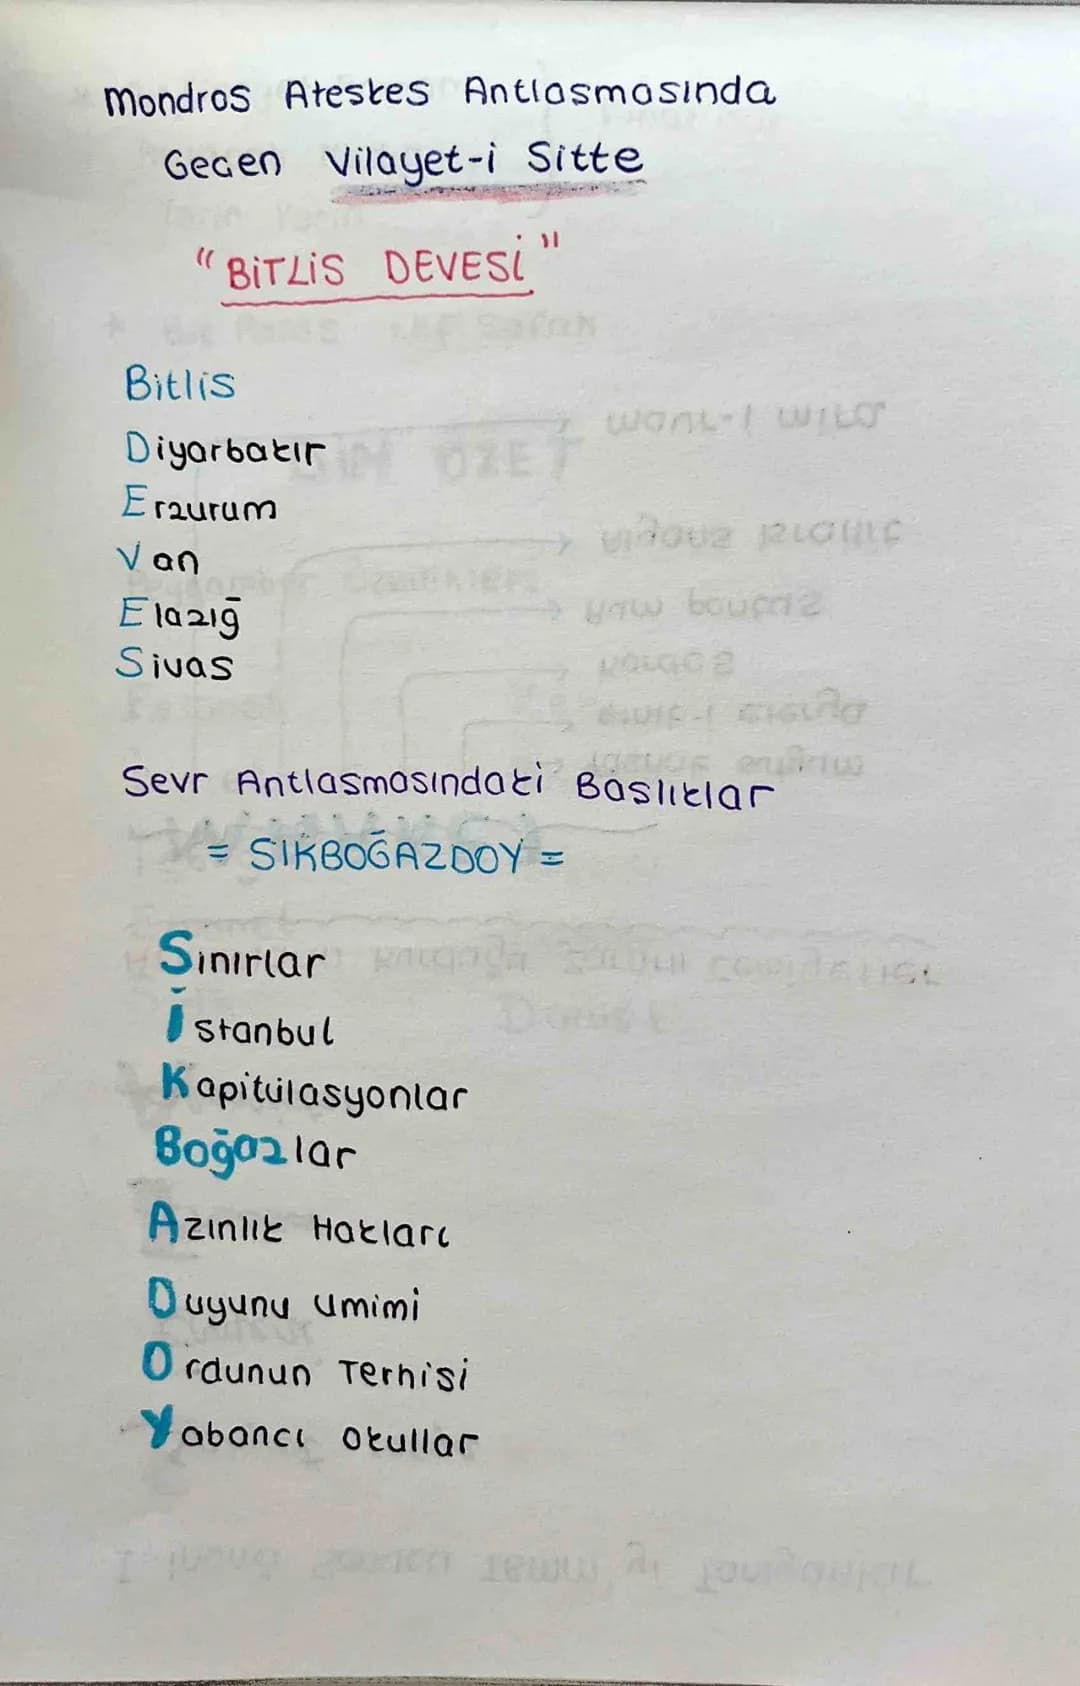 Mondros Ateskes Antlasmasında
Gecen Vilayet-i Sitte
"BİTLİS DEVESİ"
Bitlis
Diyarbakır
Erzurum
Van
Elazığ
Sivas
Sevr Antlasmasındaki Baslıklar
= SIKBOĞAZDOY =
Sınırlar
İstanbul
Kapitülasyonlar
Boğazlar
Azınlık Hakları
Duyunu Umimi
Ordunun Terhisi
Yabancı Okullar